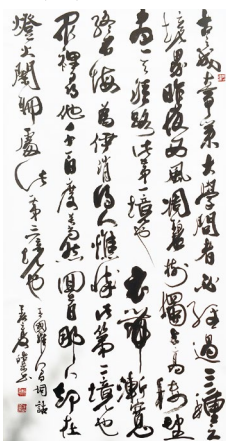 古今成事業大學問者必經過三種之
境界昨夜西風凋碧樹獨上高樓望
盡天涯路此第一境也衣帶漸寬
終不悔為伊消得人憔悴此第二境也
眾裡尋他千百度驀然回首那人卻在
燈火闌珊處此第三境也
王國維人間詞話